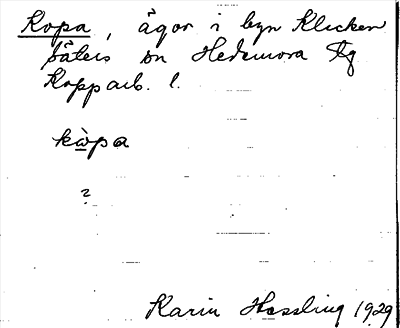 Kopa, ågor i byn Klicken
Säters sn Hedemora tg
Kopparb. l.
kòpa
?
Karin Hessling 1929